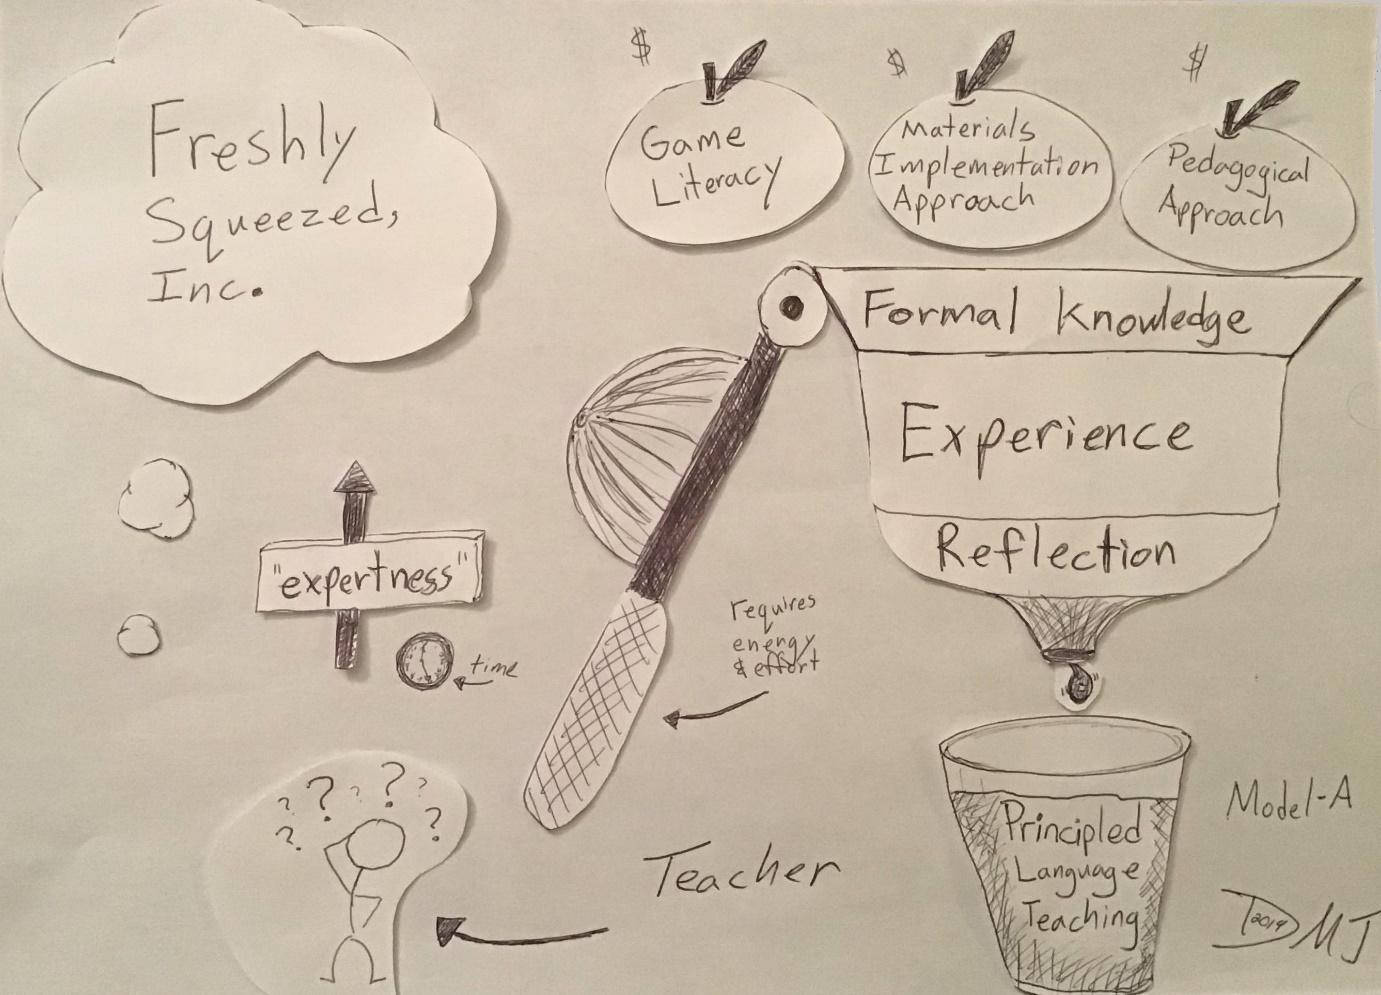 Freshly
Squeezed,
Inc.
$
$
$
Game
Literacy
Materials
Implementation
Approach
Pedagogical
Approach
Formal Knowledge
Experience
Reflection
"expertness"
time
requires
energy
& effort
? ? ? ? ?
? ?
Teacher
Principled
Language
Teaching
Model-A
D 2019 MJ